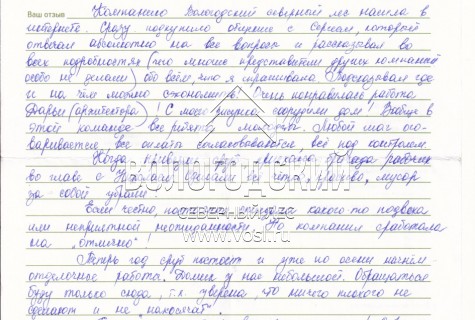 Ваш отзыв
Компанию Вологодский северный лес нашла в
интернете. Сразу подкупило общение с Сергеем, который
отвечал абсолютно на все вопросы и рассказывал во
всех подробностях (чего многие представители других компаний
особо не делали) обо всём, что я спрашивала. Подсказывал где
и на чём можно сэкономить. Очень понравилась работа
Дарьи (архитектора)! С моего рисунка соорудили дом! Вообще в
этой команде все ребята молодцы. Любой шаг ого-
варивается, все онлайн согласовывается, всё под контролем.
бригада рабочих
во главе с мусор
за собой убрали.
Если честно, какого то подвоха
или неприятной неожиданности. Но компания сработала
на "отлично"!
Теперь год сруб постоит и уже по осени начнём
отделочные работы. Домик у нас небольшой. Обращаться
буду только сюда, т.к. уверена, что ничего плохого не
сделают и не "накосячат".
ВОЛОГОДСКИЙ
СЕВЕРНЫЙ ЛЕС
www.vosl.ru